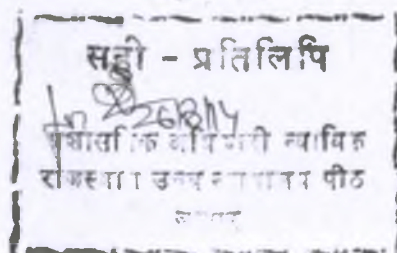 सही - प्रतिलिपि
26/8/14
प्रशासनिक अधिकारी न्यायिक
राजस्थान उच्च न्यायालय पीठ